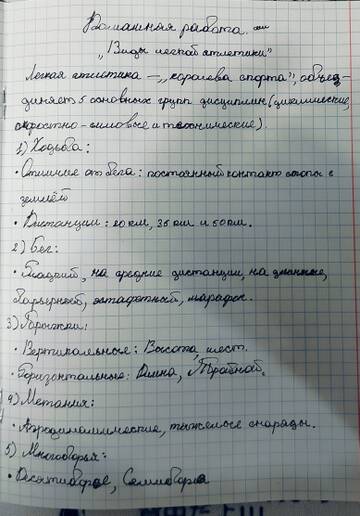 Домашняя работа.
„Виды легкой атлетики"
Легкая атлетика – „королева спорта", объед-
диняет 5 основных групп дисциплин (циклические,
скоростно-силовые и технические).
1) Ходьба:
• Отличие от бега: постоянный контакт стопы с
землёй
• Дистанции: 20 км, 35 км и 50 км.
2) Бег:
• Гладкий, на средние дистанции, на длинные,
барьерный, эстафетный, марафон.
3) Прыжки:
• Вертикальные: Высота, шест.
• Горизонтальные: Длина, Тройной.
4) Метания:
• Аэродинамические, тяжелые снаряды.
5) Многоборья:
• Десятиборье, Семиборье